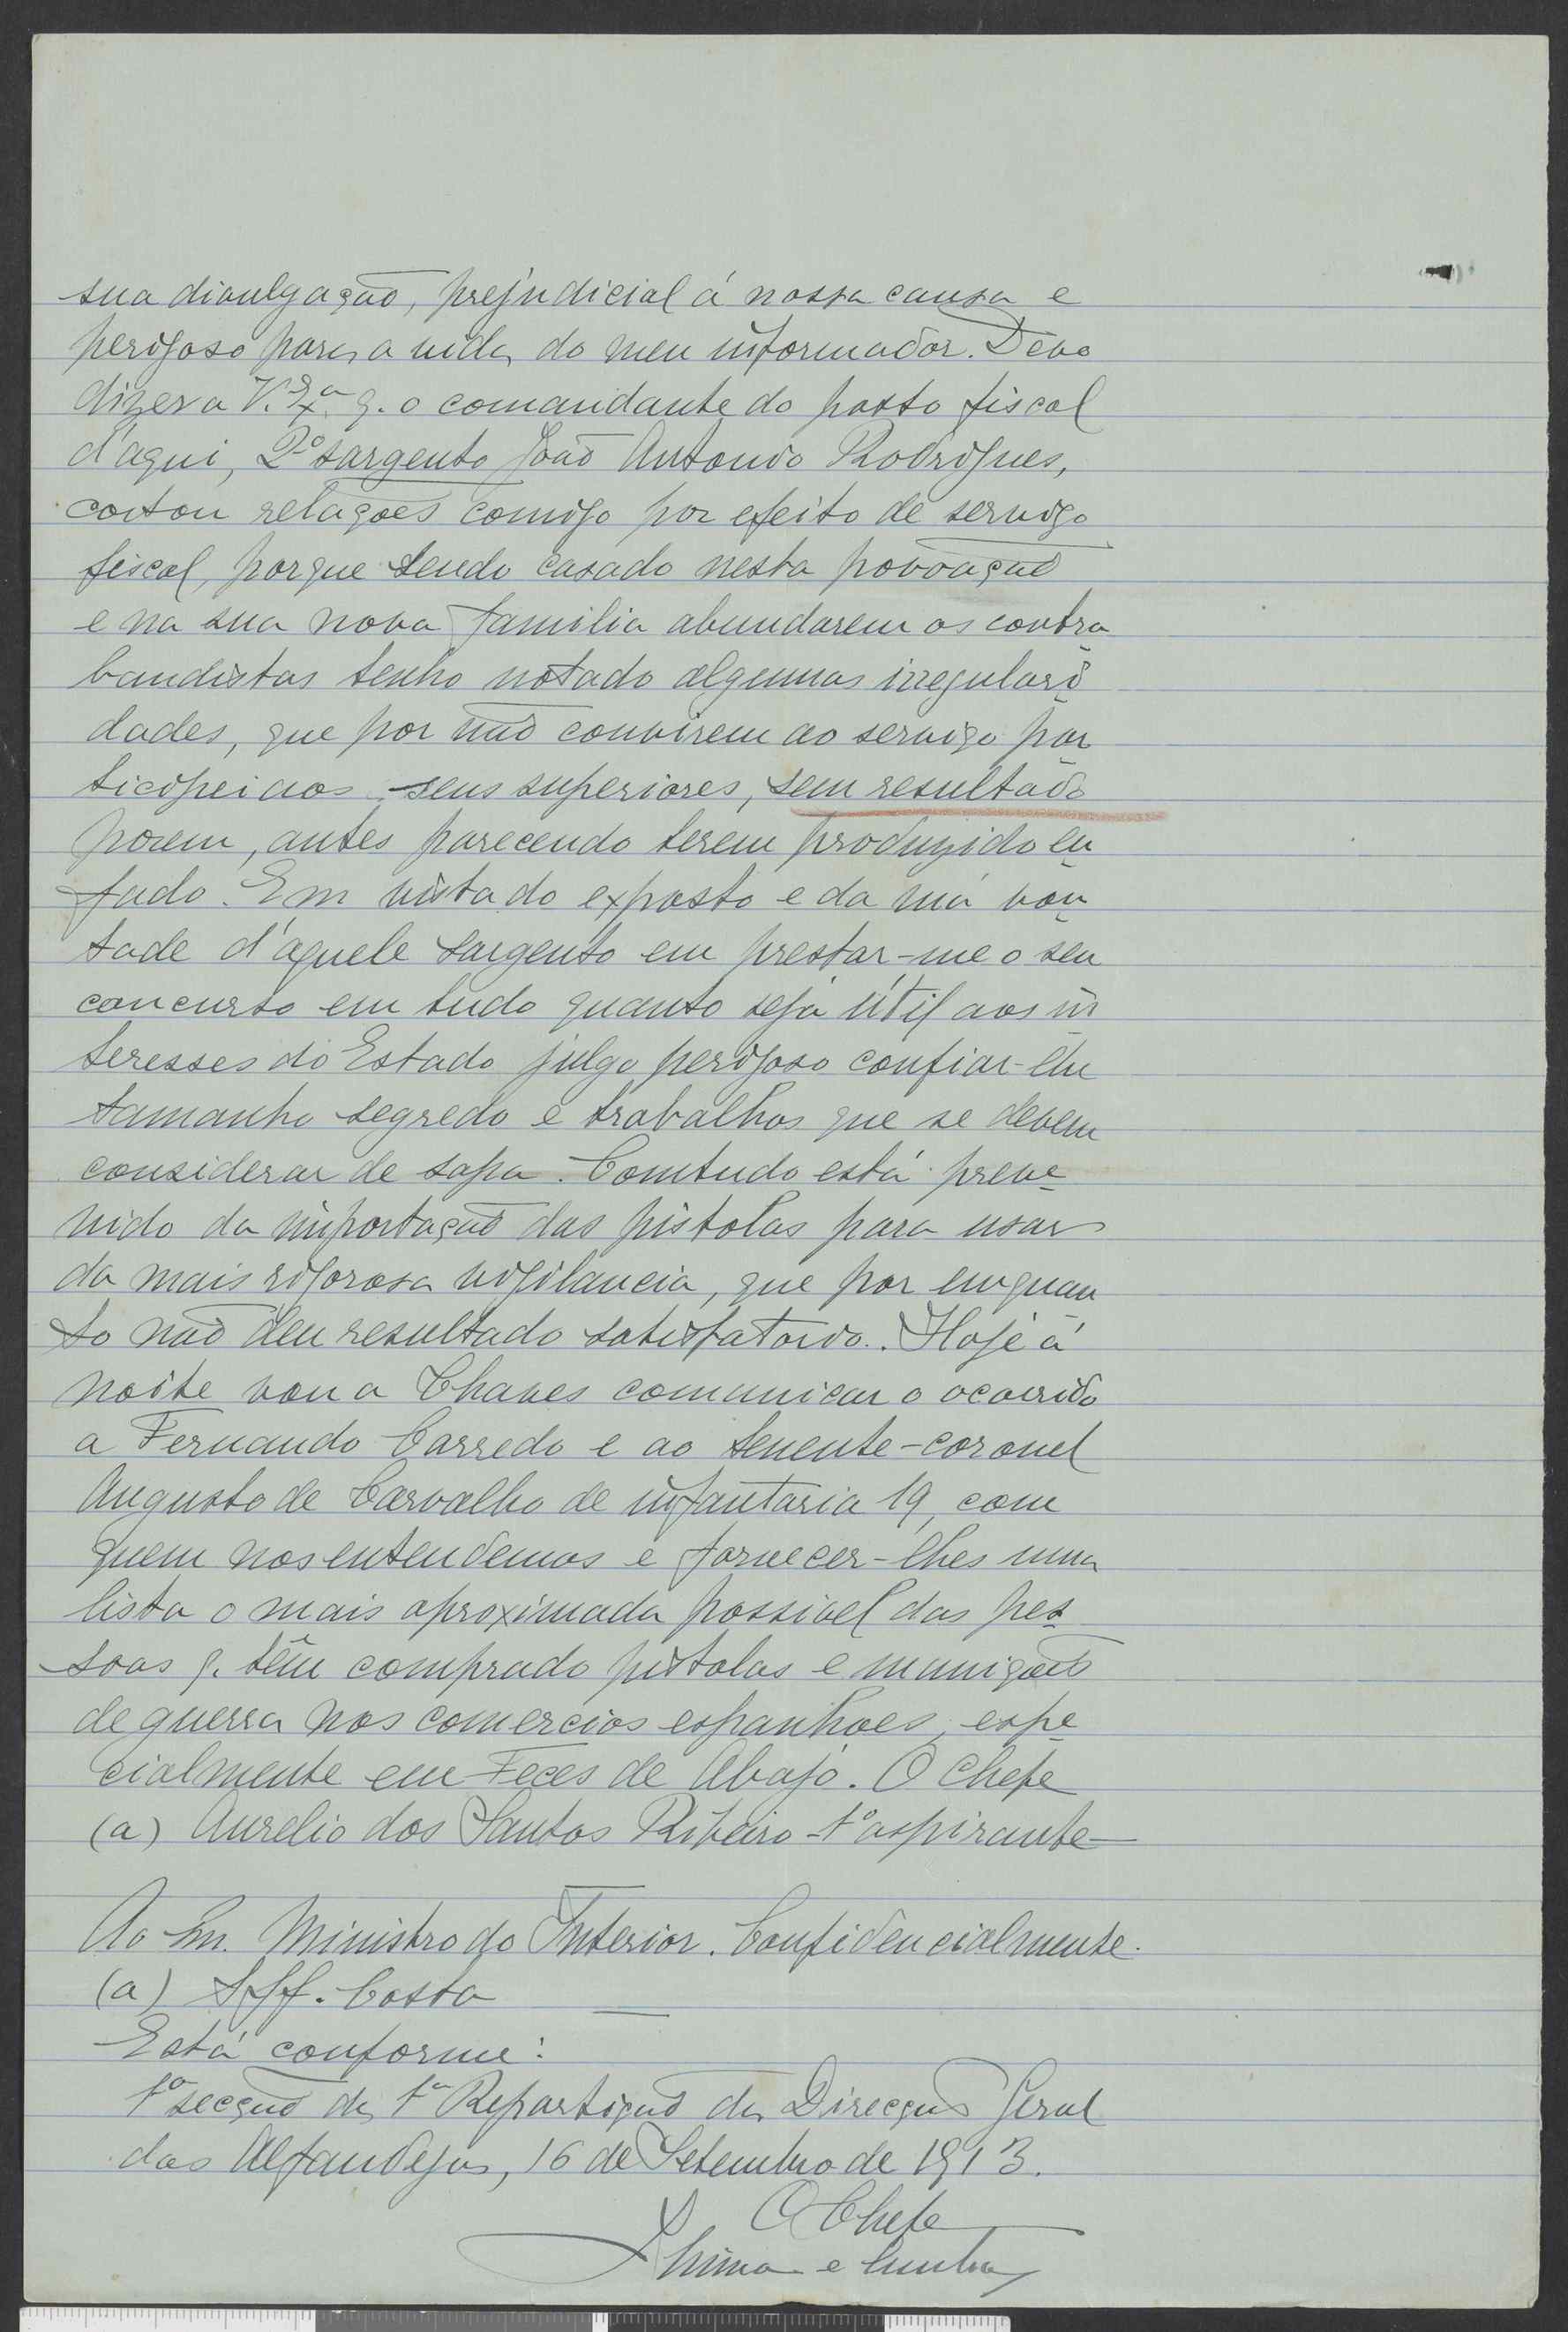 sua divulgação, prejudicial á nossa causa e
perigoso para a vida do meu informador. Devo
dizer a V. Exª. q. o comandante do posto fiscal
d'aqui, 2º sargento João Antonio Rodrigues,
cortou relações comigo por efeito de serviço
fiscal, porque sendo casado nesta povoação
e na sua nova familia abundarem os contra
bandistas tenho notado algumas irregulari
dades, que por não convirem ao serviço par
ticipei aos seus superiores, sem resultado
porem, antes parecendo terem produzido en
fado. Em vista do exposto e da má von
tade d'aquele sargento em prestar-me o seu
concurso em tudo quanto seja útil aos in
teresses do Estado julgo perigoso confiar-lhe
tamanho segredo e trabalhos que se devem
considerar de sapa. Comtudo está preve
nido da importação das pistolas para usar
da mais rigorosa vigilancia, que por emquan
to não deu resultado satisfatorio. Hoje á
noite vou a Chaves comunicar o ocorrido
a Fernando Carredo e ao tenente-coronel
Augusto de Carvalho de infantaria 19, com
quem nos entendemos e fornecer-lhes uma
lista o mais aproximada possivel das pes
soas q. têm comprado pistolas e munições
de guerra nos comercios espanhoes, espe
cialmente em Feces de Abajo. O Chefe
(a) Aurelio dos Santos Ribeiro - 1º aspirante -
Ao Sn. Ministro do Interior. Confidencialmente.
(a) Aff. Costa
Está conforme:
1ª secção da 1ª Repartição da Direcção Geral
das Alfandegas, 16 de Setembro de 1913.
O Chefe
e Cunha